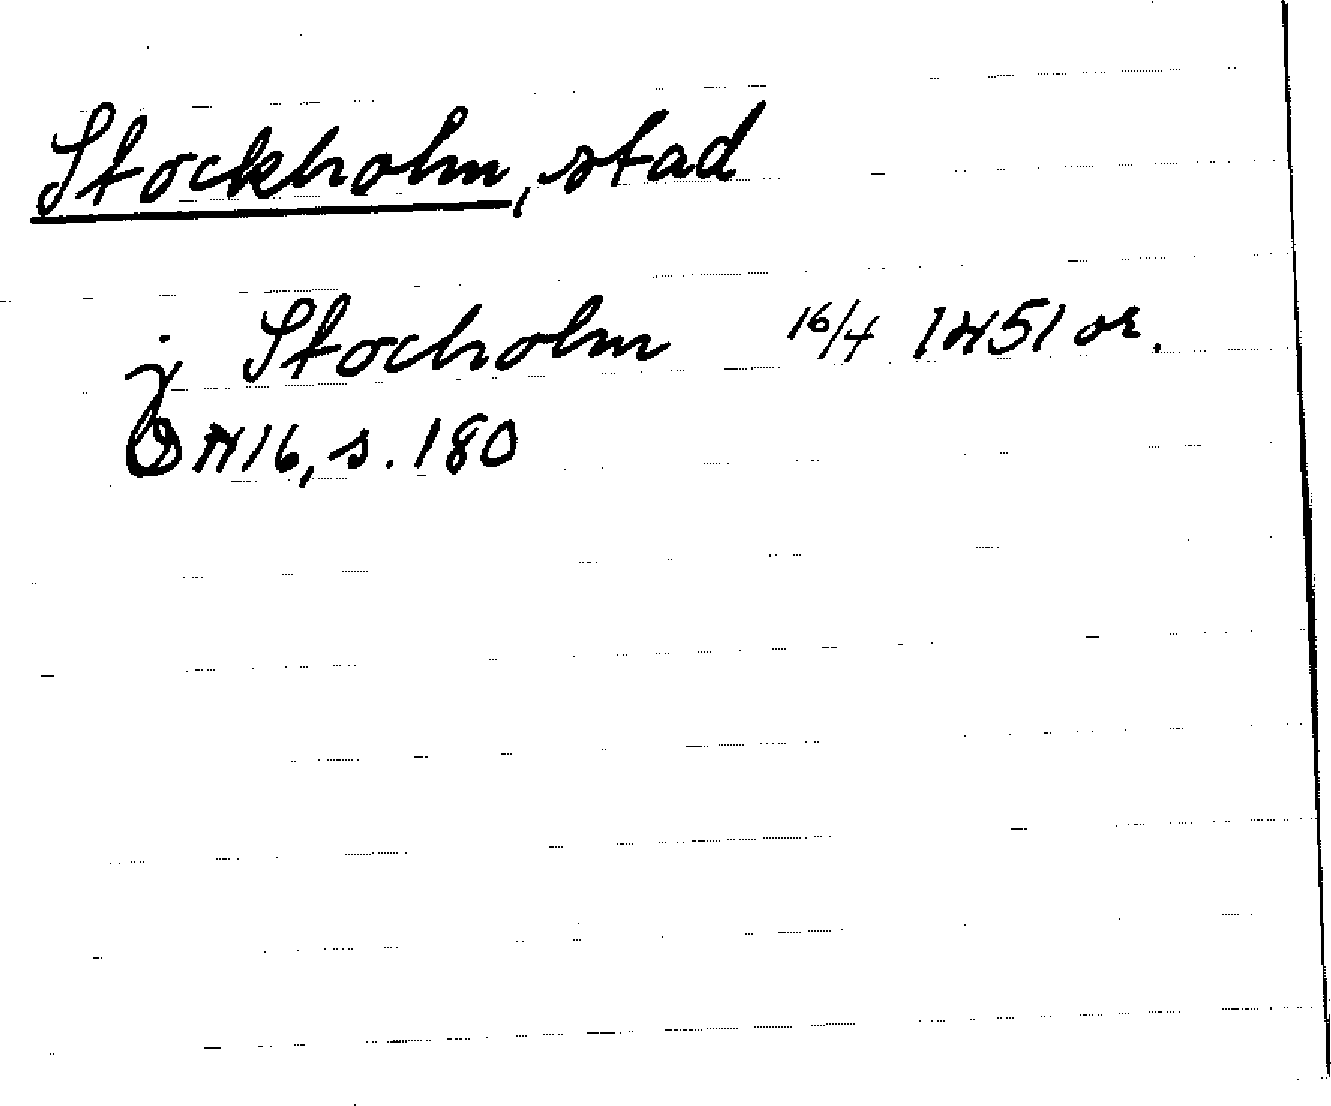 Stockholm, stad
j Stocholm 16/4 1451 or.
B 16, s. 180